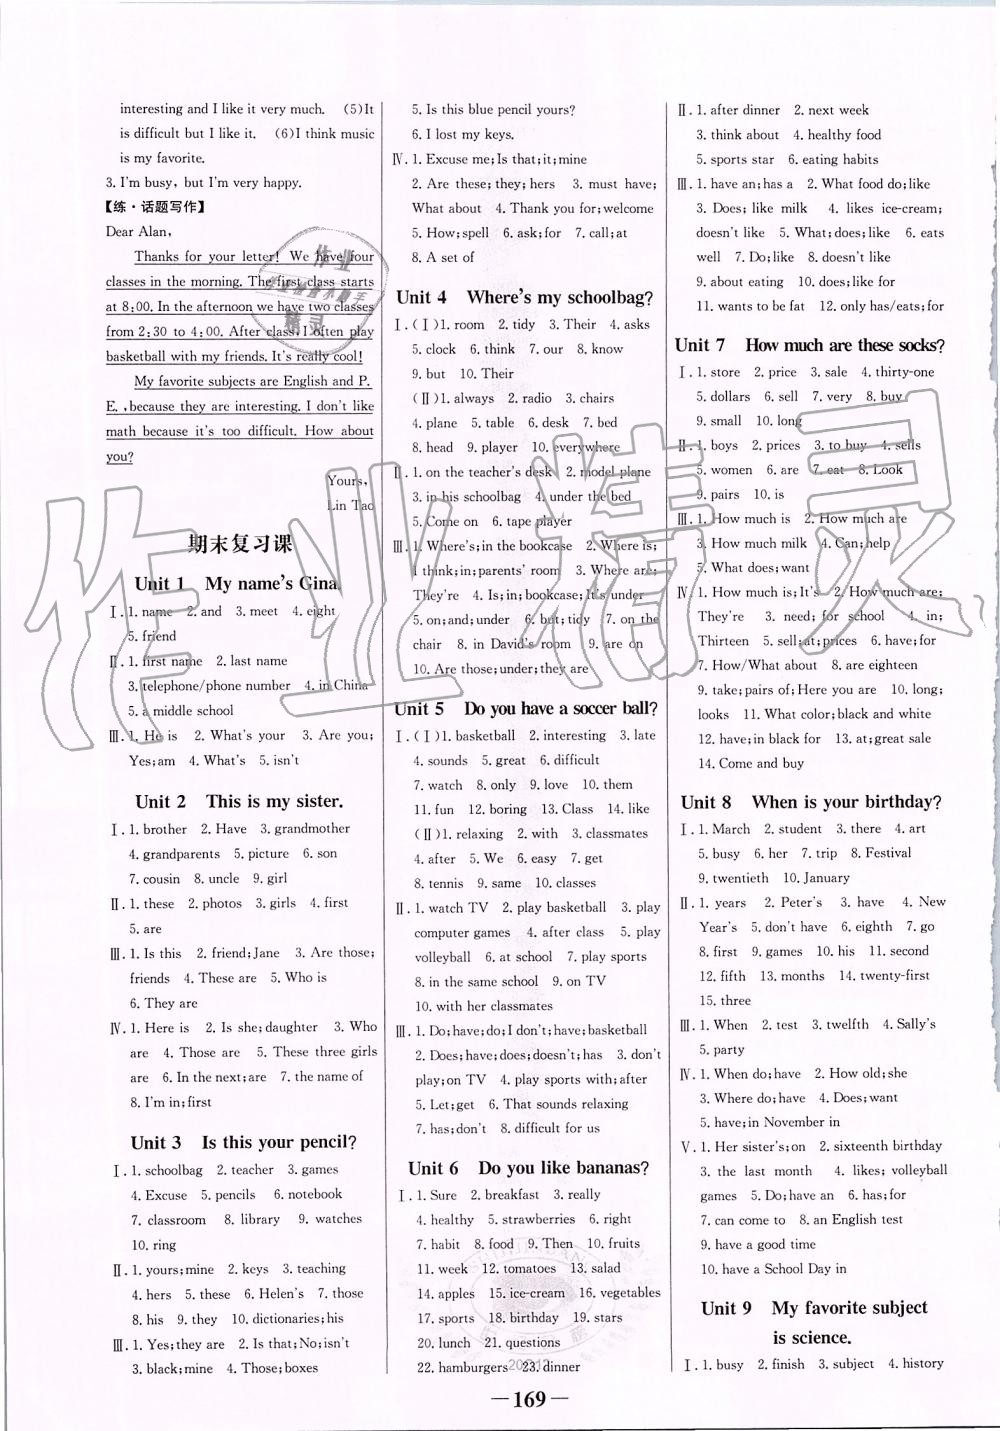 interesting and I like it very much.　(5)It
is difficult but I like it.　(6)I think music
is my favorite.
3. I'm busy, but I'm very happy.
【练·话题写作】
Dear Alan,
Thanks for your letter! We have four
classes in the morning. The first class starts
at 8:00. In the afternoon we have two classes
from 2:30 to 4:00. After class, I often play
basketball with my friends. It's really cool!
My favorite subjects are English and P.
E., because they are interesting. I don't like
math because it's too difficult. How about
you?
Yours,
Lin Tao
期末复习课
Unit 1　My name's Gina.
Ⅰ. 1. name　2. and　3. meet　4. eight
5. friend
Ⅱ. 1. first name　2. last name
3. telephone/phone number　4. in China
5. a middle school
Ⅲ. 1. He is　2. What's your　3. Are you;
Yes;am　4. What's　5. isn't
Unit 2　This is my sister.
Ⅰ. 1. brother　2. Have　3. grandmother
4. grandparents　5. picture　6. son
7. cousin　8. uncle　9. girl
Ⅱ. 1. these　2. photos　3. girls　4. first
5. are
Ⅲ. 1. Is this　2. friend;Jane　3. Are those;
friends　4. These are　5. Who is
6. They are
Ⅳ. 1. Here is　2. Is she;daughter　3. Who
are　4. Those are　5. These three girls
are　6. In the next;are　7. the name of
8. I'm in;first
Unit 3　Is this your pencil?
Ⅰ. 1. schoolbag　2. teacher　3. games
4. Excuse　5. pencils　6. notebook
7. classroom　8. library　9. watches
10. ring
Ⅱ. 1. yours;mine　2. keys　3. teaching
4. hers　5. these　6. Helen's　7. those
8. his　9. they　10. dictionaries;his
Ⅲ. 1. Yes;they are　2. Is that;No;isn't
3. black;mine　4. Those;boxes
5. Is this blue pencil yours?
6. I lost my keys.
Ⅳ. 1. Excuse me;Is that;it;mine
2. Are these;they;hers　3. must have;
What about　4. Thank you for;welcome
5. How;spell　6. ask;for　7. call;at
8. A set of
Unit 4　Where's my schoolbag?
Ⅰ. (Ⅰ)1. room　2. tidy　3. Their　4. asks
5. clock　6. think　7. our　8. know
9. but　10. Their
(Ⅱ)1. always　2. radio　3. chairs
4. plane　5. table　6. desk　7. bed
8. head　9. player　10. everywhere
Ⅱ. 1. on the teacher's desk　2. model plane
3. in his schoolbag　4. under the bed
5. Come on　6. tape player
Ⅲ. 1. Where's;in the bookcase　2. Where is;
I think;in;parents' room　3. Where are;
They're　4. Is;in;bookcase;It's;under
5. on;and;under　6. but;tidy　7. on the
chair　8. in David's room　9. are on
10. Are those;under;they are
Unit 5　Do you have a soccer ball?
Ⅰ. (Ⅰ)1. basketball　2. interesting　3. late
4. sounds　5. great　6. difficult
7. watch　8. only　9. love　10. them
11. fun　12. boring　13. Class　14. like
(Ⅱ)1. relaxing　2. with　3. classmates
4. after　5. We　6. easy　7. get
8. tennis　9. same　10. classes
Ⅱ. 1. watch TV　2. play basketball　3. play
computer games　4. after class　5. play
volleyball　6. at school　7. play sports
8. in the same school　9. on TV
10. with her classmates
Ⅲ. 1. Do;have;do;I don't;have;basketball
2. Does;have;does;doesn't;has　3. don't
play;on TV　4. play sports with;after
5. Let;get　6. That sounds relaxing
7. has;don't　8. difficult for us
Unit 6　Do you like bananas?
Ⅰ. 1. Sure　2. breakfast　3. really
4. healthy　5. strawberries　6. right
7. habit　8. food　9. Then　10. fruits
11. week　12. tomatoes　13. salad
14. apples　15. ice-cream　16. vegetables
17. sports　18. birthday　19. stars
20. lunch　21. questions
22. hamburgers　23. dinner
Ⅱ. 1. after dinner　2. next week
3. think about　4. healthy food
5. sports star　6. eating habits
Ⅲ. 1. have an;has a　2. What food do;like
3. Does; like milk　4. likes ice-cream;
doesn't like　5. What;does;like　6. eats
well　7. Do;like　8. doesn't like
9. about eating　10. does;like for
11. wants to be fat　12. only has/eats;for
Unit 7　How much are these socks?
Ⅰ. 1. store　2. price　3. sale　4. thirty-one
5. dollars　6. sell　7. very　8. buy
9. small　10. long
Ⅱ. 1. boys　2. prices　3. to buy　4. sells
5. women　6. are　7. eat　8. Look
9. pairs　10. is
Ⅲ. 1. How much is　2. How much are
3. How much milk　4. Can;help
5. What does;want
Ⅳ. 1. How much is;It's　2. How much are;
They're　3. need; for school　4. in;
Thirteen　5. sell;at;prices　6. have;for
7. How/What about　8. are eighteen
9. take;pairs of;Here you are　10. long;
looks　11. What color;black and white
12. have;in black for　13. at;great sale
14. Come and buy
Unit 8　When is your birthday?
Ⅰ. 1. March　2. student　3. there　4. art
5. busy　6. her　7. trip　8. Festival
9. twentieth　10. January
Ⅱ. 1. years　2. Peter's　3. have　4. New
Year's　5. don't have　6. eighth　7. go
8. first　9. games　10. his　11. second
12. fifth　13. months　14. twenty-first
15. three
Ⅲ. 1. When　2. test　3. twelfth　4. Sally's
5. party
Ⅳ. 1. When do;have　2. How old;she
3. Where do;have　4. Does;want
5. have;in November in
Ⅴ. 1. Her sister's;on　2. sixteenth birthday
3. the last month　4. likes; volleyball
games　5. Do;have an　6. has;for
7. can come to　8. an English test
9. have a good time
10. have a School Day in
Unit 9　My favorite subject
is science.
Ⅰ. 1. busy　2. finish　3. subject　4. history
— 169 —
作业精灵